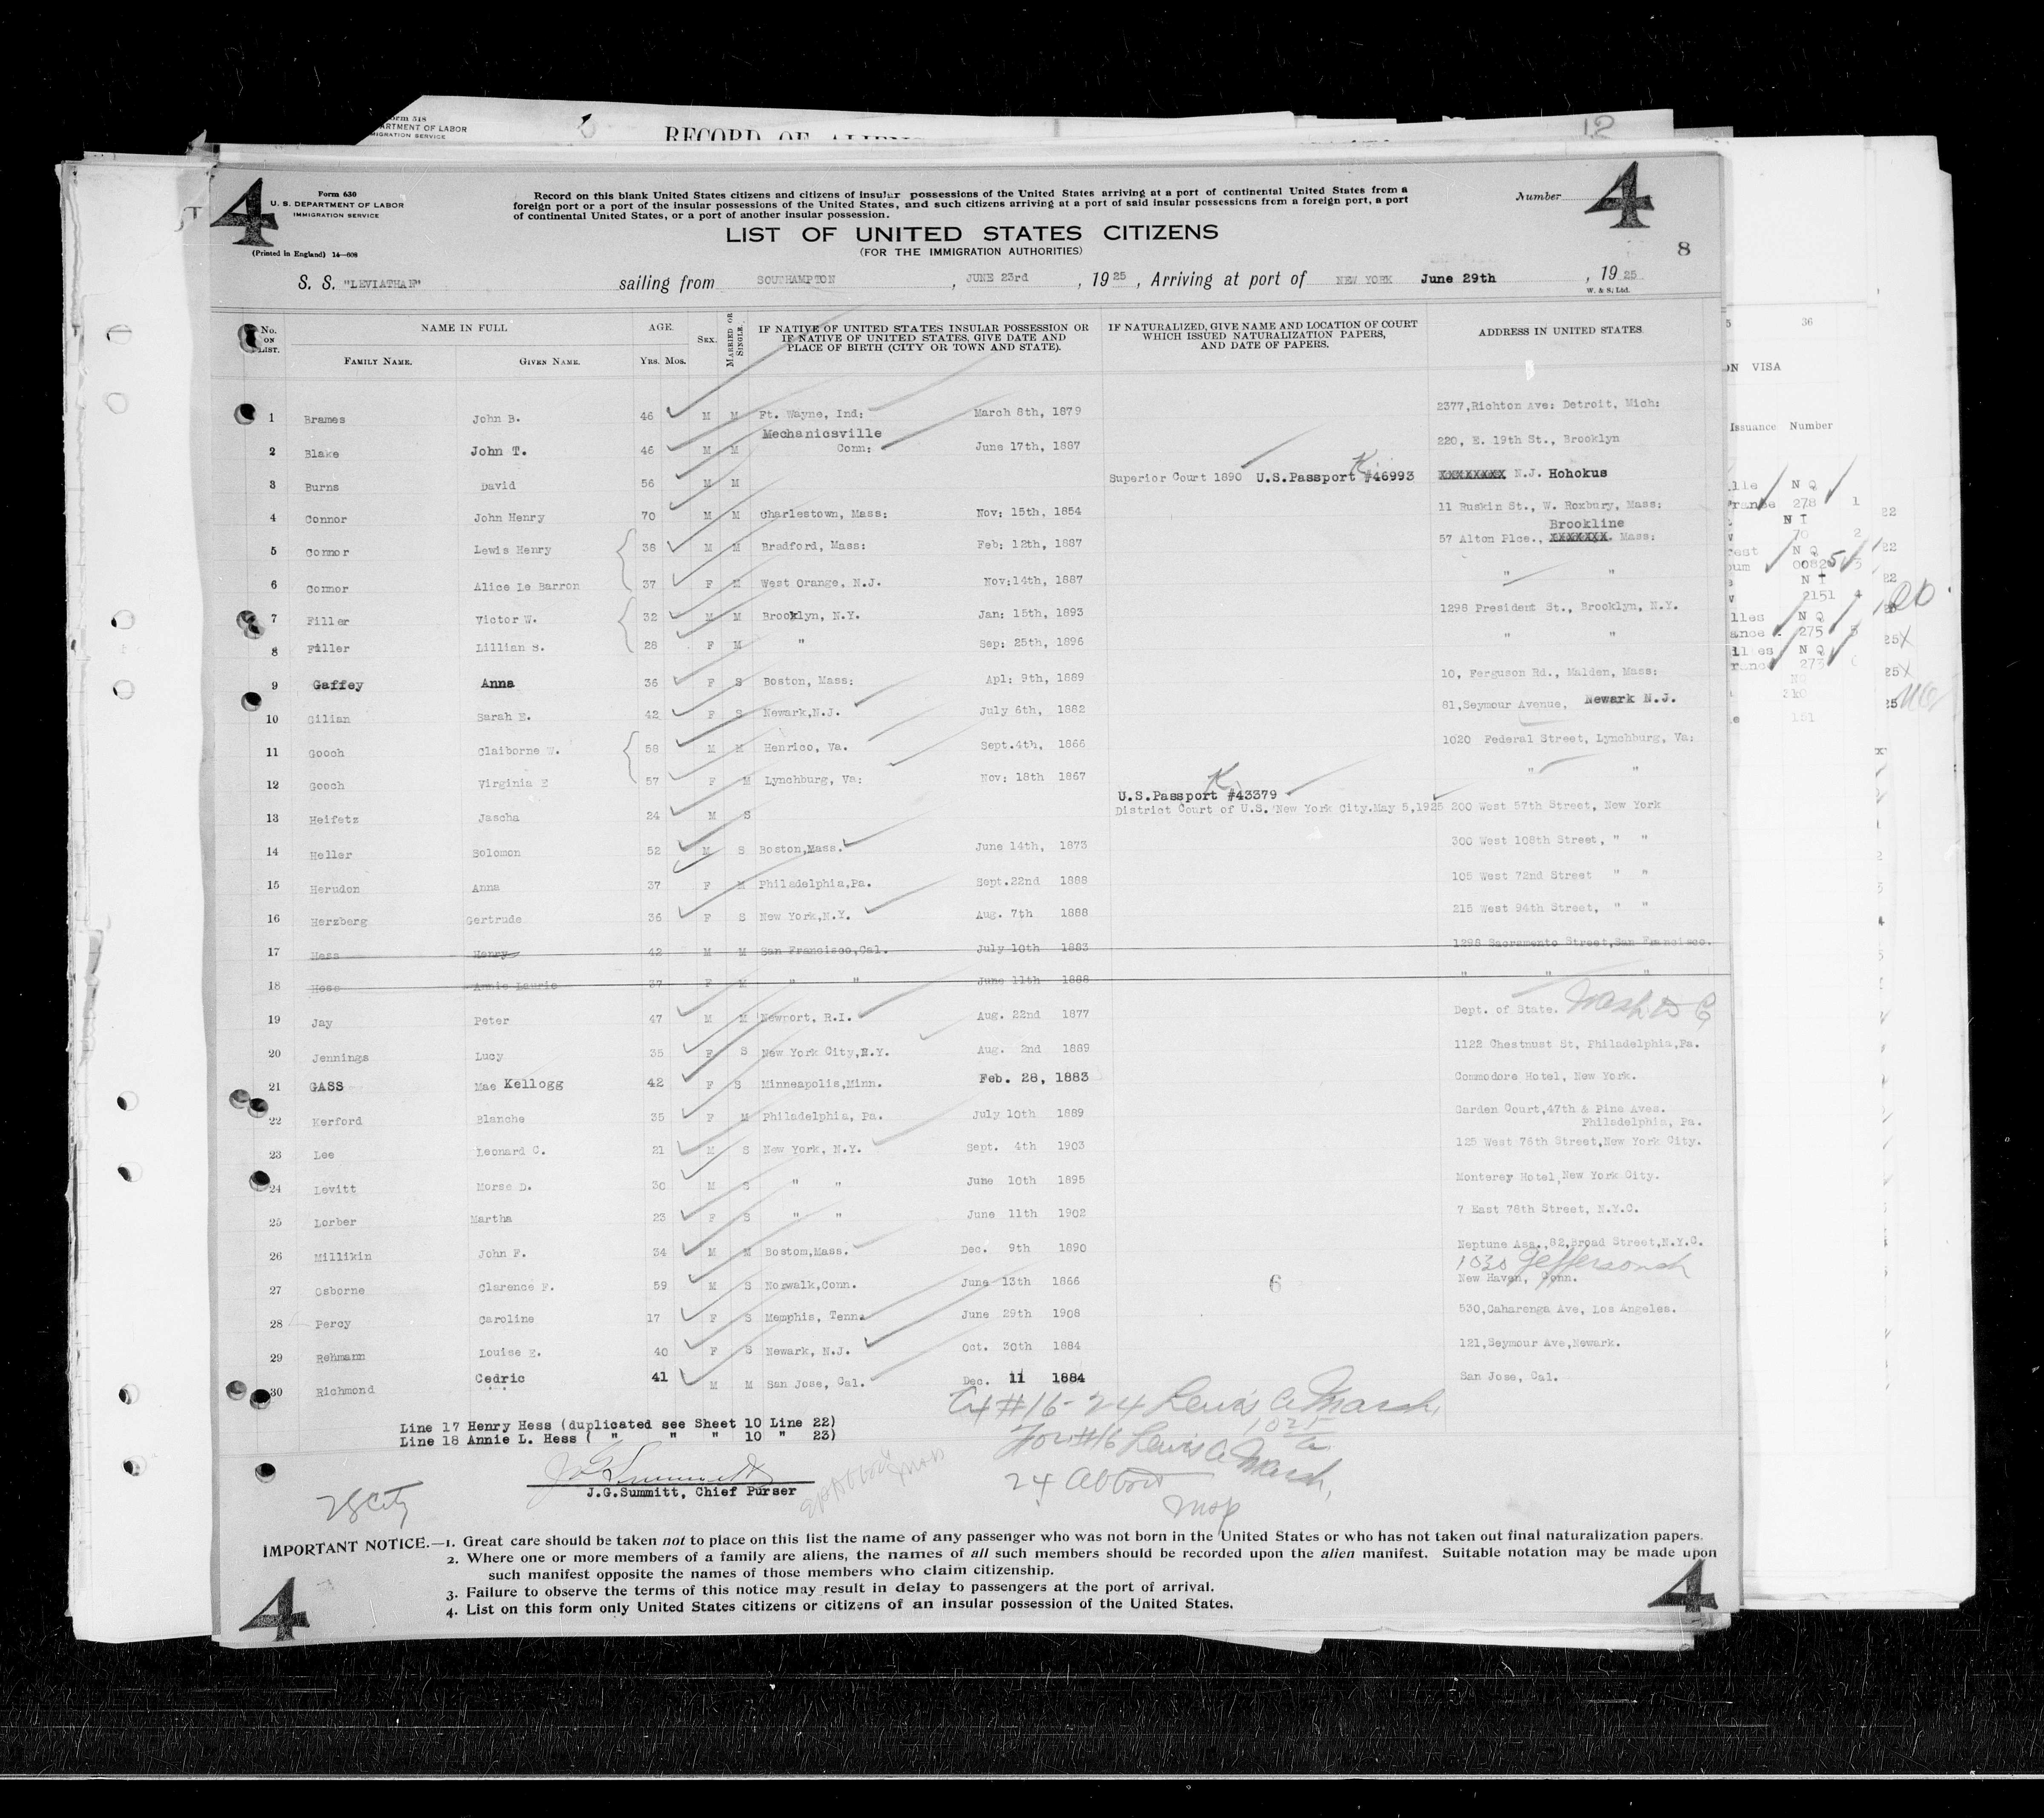 Form 518
DEPARTMENT OF LABOR
IMMIGRATION SERVICE
RECORD OF ALIENS
12
4
Form 630
U. S. DEPARTMENT OF LABOR
IMMIGRATION SERVICE
(Printed in England) 14—608
Record on this blank United States citizens and citizens of insular possessions of the United States arriving at a port of continental United States from a
foreign port or a port of the insular possessions of the United States, and such citizens arriving at a port of said insular possessions from a foreign port, a port
of continental United States, or a port of another insular possession.
Number
4
8
LIST OF UNITED STATES CITIZENS
(FOR THE IMMIGRATION AUTHORITIES)
S. S. "LEVIATHAN" sailing from SOUTHAMPTON, JUNE 23rd, 1925, Arriving at port of NEW YORK June 29th, 1925
W. & S. Ltd.
No. ON LIST. NAME IN FULL AGE. SEX. MARRIED OR SINGLE. IF NATIVE OF UNITED STATES INSULAR POSSESSION OR IF NATIVE OF UNITED STATES, GIVE DATE AND PLACE OF BIRTH (CITY OR TOWN AND STATE). IF NATURALIZED, GIVE NAME AND LOCATION OF COURT WHICH ISSUED NATURALIZATION PAPERS, AND DATE OF PAPERS. ADDRESS IN UNITED STATES
FAMILY NAME. GIVEN NAME. YRS. MOS.
1 Brames John B. 46 M M Ft. Wayne, Ind: March 8th, 1879 2377,Richton Ave: Detroit, Mich:
2 Blake John T. 46 M M Mechanicsville Conn: June 17th, 1887 220, E. 19th St., Brooklyn
3 Burns David 56 M M Superior Court 1890 U.S.Passport #46993 K. XXXXXXXX N.J. Hohokus
4 Connor John Henry 70 M M Charlestown, Mass: Nov: 15th, 1854 11 Ruskin St., W. Roxbury, Mass:
5 Connor Lewis Henry 38 M M Bradford, Mass: Feb: 12th, 1887 57 Alton Plce., XXXXXXX Brookline Mass:
6 Connor Alice Le Barron 37 F M West Orange, N.J. Nov:14th, 1887 " "
7 Filler Victor W. 32 M M Brooklyn, N.Y. Jan: 15th, 1893 1298 President St., Brooklyn, N.Y.
8 Filler Lillian S. 28 F M " Sep: 25th, 1896 " "
9 Gaffey Anna 36 F S Boston, Mass: Apl: 9th, 1889 10, Ferguson Rd., Malden, Mass:
10 Gilian Sarah E. 42 F S Newark,N.J. July 6th, 1882 81,Seymour Avenue, Newark N.J.
11 Gooch Claiborne W. 58 M M Henrico, Va. Sept.4th, 1866 1020 Federal Street, Lynchburg, Va:
12 Gooch Virginia E 57 F M Lynchburg, Va: Nov: 18th 1867 " "
K
U.S.Passport #43379
13 Heifetz Jascha 24 M S District Court of U.S. New York City.May 5,1925 200 West 57th Street, New York
14 Heller Solomon 52 M S Boston,Mass. June 14th, 1873 300 West 108th Street, " "
15 Herudon Anna 37 F M Philadelphia,Pa. Sept.22nd 1888 105 West 72nd Street " "
16 Herzberg Gertrude 36 F S New York,N.Y. Aug. 7th 1888 215 West 94th Street, " "
17 Hess Henry 42 M M San Francisco,Cal. July 10th 1883 1298 Sacramento Street,San Francisco.
18 Hess Annie Laurie 37 F M " " June 11th 1888 " " "
19 Jay Peter 47 M M Newport, R.I. Aug. 22nd 1877 Dept. of State. Wash D C
20 Jennings Lucy 35 F S New York City,N.Y. Aug. 2nd 1889 1122 Chestnust St, Philadelphia,Pa.
21 GASS Mae Kellogg 42 F S Minneapolis,Minn. Feb. 28, 1883 Commodore Hotel, New York.
22 Kerford Blanche 35 F M Philadelphia, Pa. July 10th 1889 Garden Court,47th & Pine Aves. Philadelphia, Pa.
23 Lee Leonard C. 21 M S New York, N.Y. Sept. 4th 1903 125 West 76th Street,New York City.
24 Levitt Morse D. 30 M S " " June 10th 1895 Monterey Hotel,New York City.
25 Lorber Martha 23 F S " " June 11th 1902 7 East 78th Street, N.Y.C.
26 Millikin John F. 34 M M Bostom,Mass. Dec. 9th 1890 Neptune Ass.,82,Broad Street,N.Y.C.
1030 Jefferson
27 Osborne Clarence F. 59 M S Norwalk,Conn. June 13th 1866 6 New Haven, Conn.
28 Percy Caroline 17 F S Memphis, Tenn. June 29th 1908 530,Caharenga Ave, Los Angeles.
29 Rehmann Louise E. 40 F S Newark, N.J. Oct. 30th 1884 121,Seymour Ave,Newark.
30 Richmond Cedric 41 M M San Jose, Cal. Dec. 11 1884 San Jose, Cal.
#16-24 Lewis A Marsh,
Line 17 Henry Hess (duplicated see Sheet 10 Line 22)
Line 18 Annie L. Hess ( " " " 10 " 23)
1025
For #16 Lewis A Marsh,
24 Abbott
J.G.Summitt, Chief Purser
28 City
IMPORTANT NOTICE.—1. Great care should be taken not to place on this list the name of any passenger who was not born in the United States or who has not taken out final naturalization papers.
2. Where one or more members of a family are aliens, the names of all such members should be recorded upon the alien manifest. Suitable notation may be made upon
such manifest opposite the names of those members who claim citizenship.
3. Failure to observe the terms of this notice may result in delay to passengers at the port of arrival.
4. List on this form only United States citizens or citizens of an insular possession of the United States.
4
4
36
VISA
Issuance Number
N Q
278 1
N I
70 2
N Q
0082
N I
2151 4
N Q
275 5
N Q
273
310
151
22
22
22
20
25X
25X
25